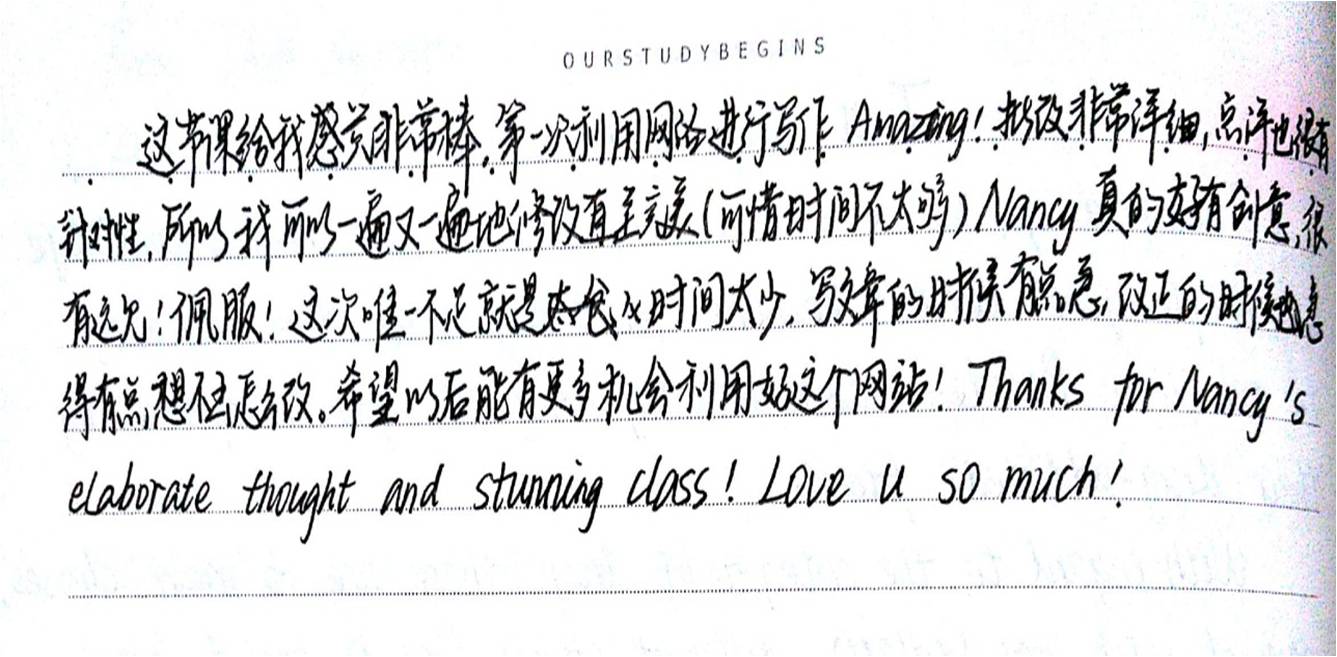 OURSTUDYBEGINS
这节课给我感觉非常棒,第一次利用网络进行写作 Amazing! 批改非常详细,点评也很有
针对性,所以我可以一遍又一遍地修改直至完美(可惜时间不太够)Nancy 真的好有创意,很
有远见!佩服!这次唯一不足就是时间太少,写文章的时候有点急,改正的时候也急
得有点想不到怎么改。希望以后能有更多机会利用好这个网站! Thanks for Nancy's
elaborate thought and stunning class! Love u so much!